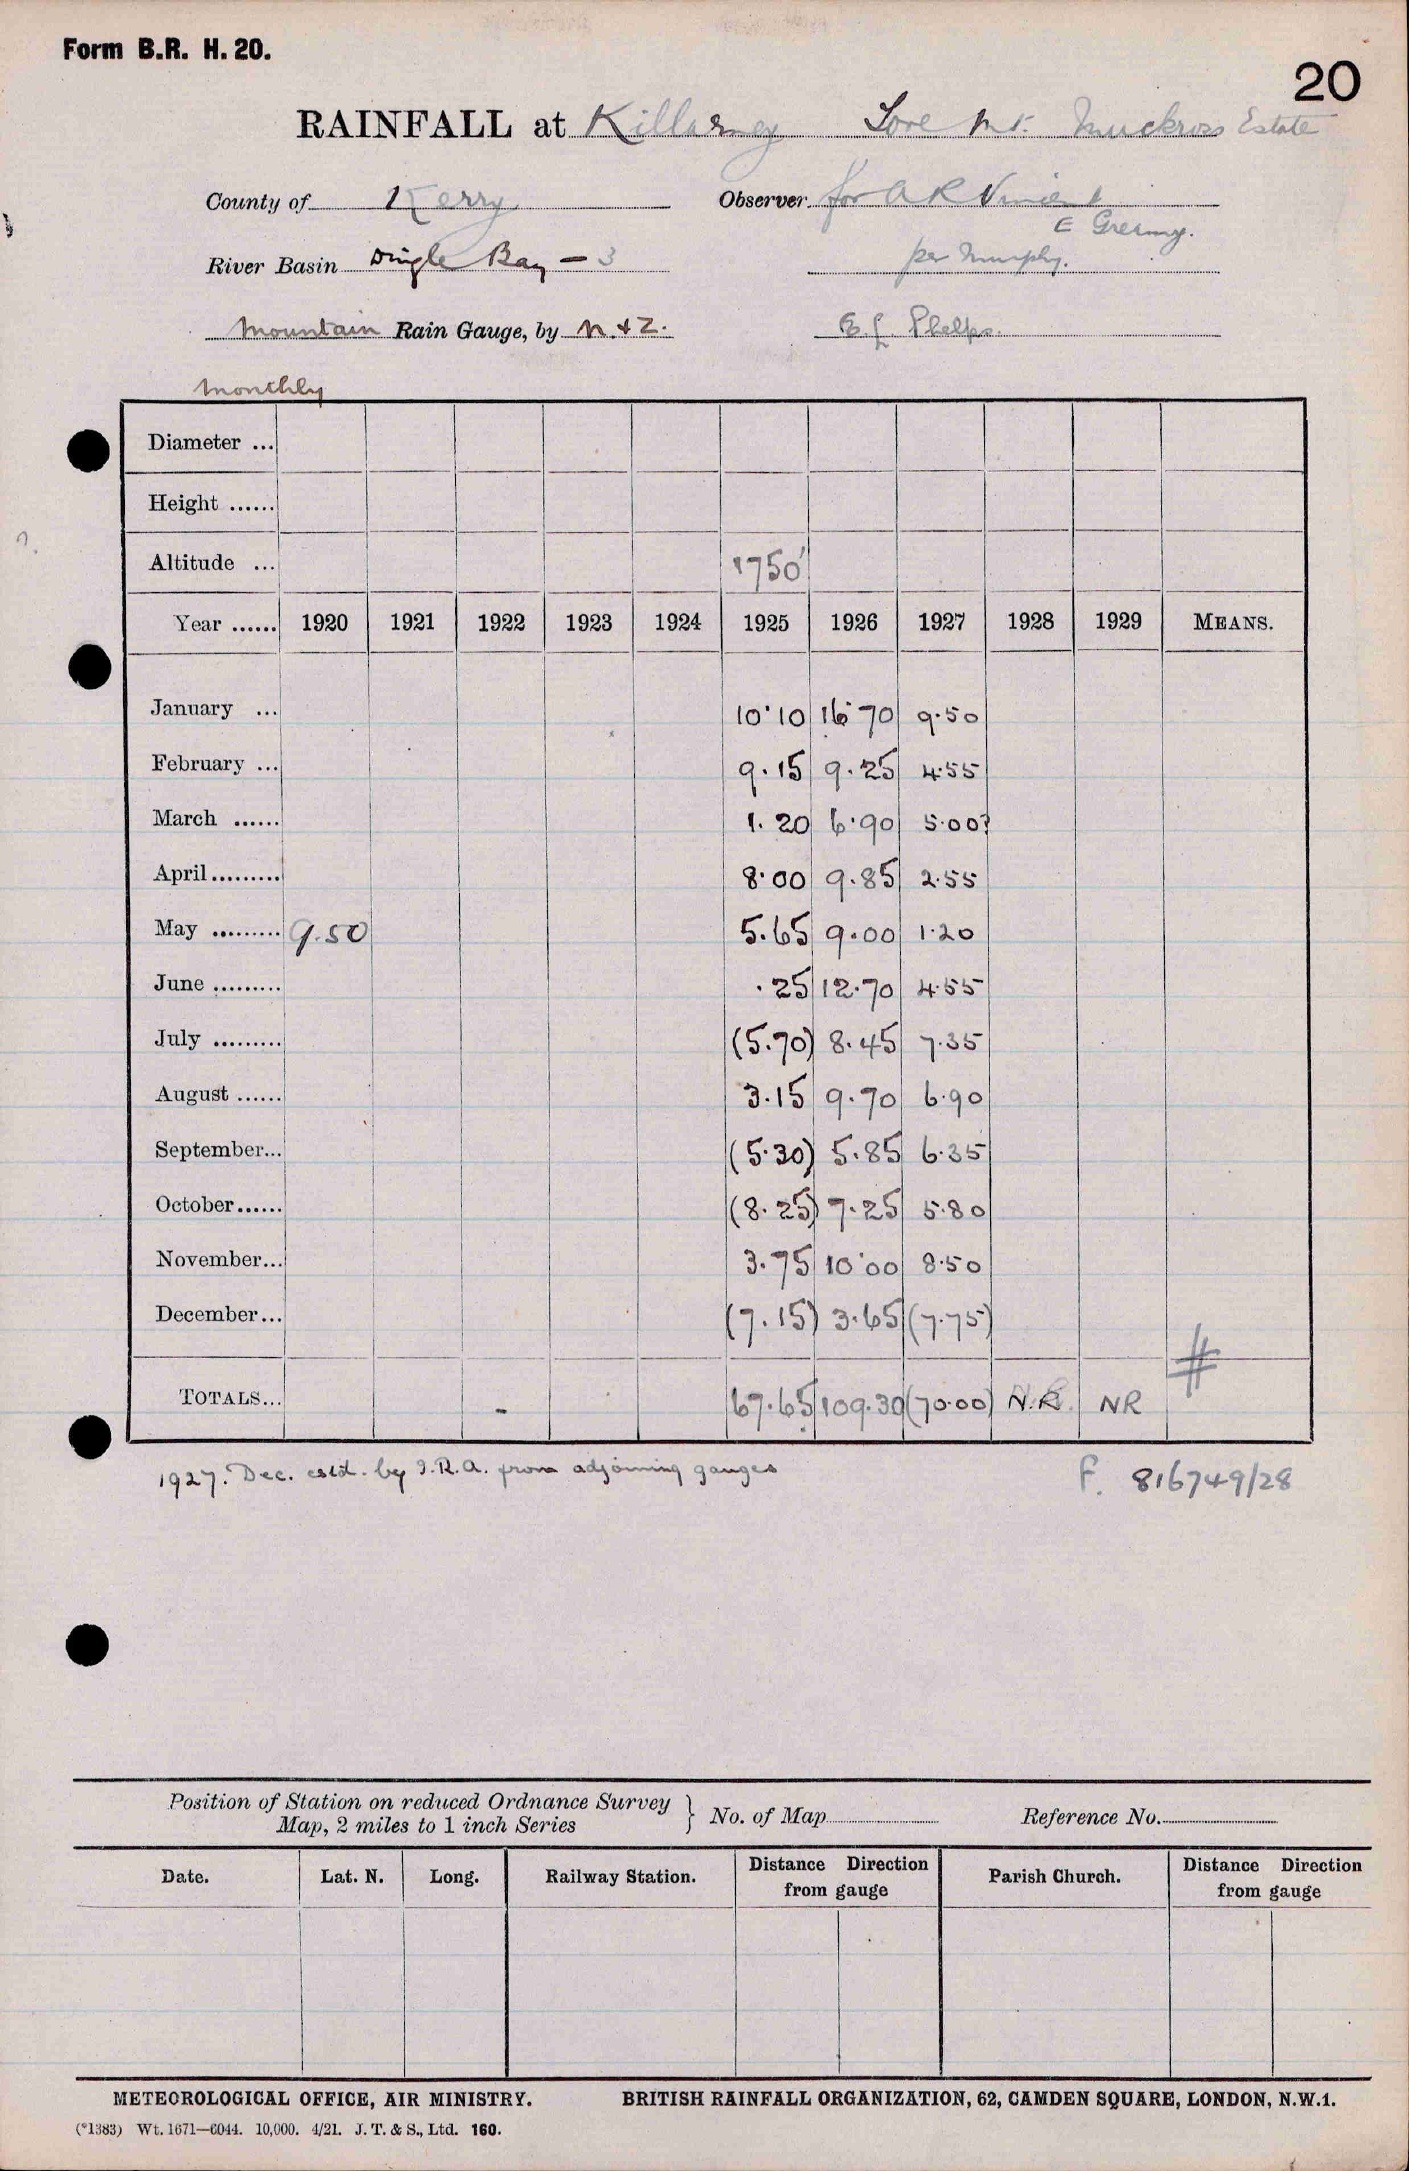 Form B.R. H. 20.
20
RAINFALL at Killarney Tore Mt. Muckross Estate
County of Kerry Observer for A R Vincent
E Greany.
River Basin Dingle Bay — 3 per Murphy.
Mountain Rain Gauge, by N. & Z. E. L. Phelps.
Monthly
Diameter ...
Height ......
Altitude ... 1750'
Year ...... 1920 1921 1922 1923 1924 1925 1926 1927 1928 1929 MEANS.
January ... 10·10 16·70 9·50
February ... 9.15 9.25 4.55
March ...... 1.20 6.90 5.00?
April ......... 8.00 9.85 2.55
May ......... 9.50 5.65 9.00 1.20
June ......... .25 12.70 4.55
July ......... (5.70) 8.45 7.35
August ...... 3.15 9.70 6.90
September... (5.30) 5.85 6.35
October...... (8.25) 7.25 5.80
November... 3.75 10.00 8.50
December... (7.15) 3.65 (7.75)
#
TOTALS... - 67.65 109.30 (70.00) N.R. NR
1927. Dec. estd. by I.R.A. from adjoining gauges F. 816749/28
Position of Station on reduced Ordnance Survey
Map, 2 miles to 1 inch Series } No. of Map Reference No.
Date. Lat. N. Long. Railway Station. Distance Direction from gauge Parish Church. Distance Direction from gauge
METEOROLOGICAL OFFICE, AIR MINISTRY. BRITISH RAINFALL ORGANIZATION, 62, CAMDEN SQUARE, LONDON, N.W.1.
(*1383) Wt. 1671—6044. 10,000. 4/21. J. T. & S., Ltd. 160.